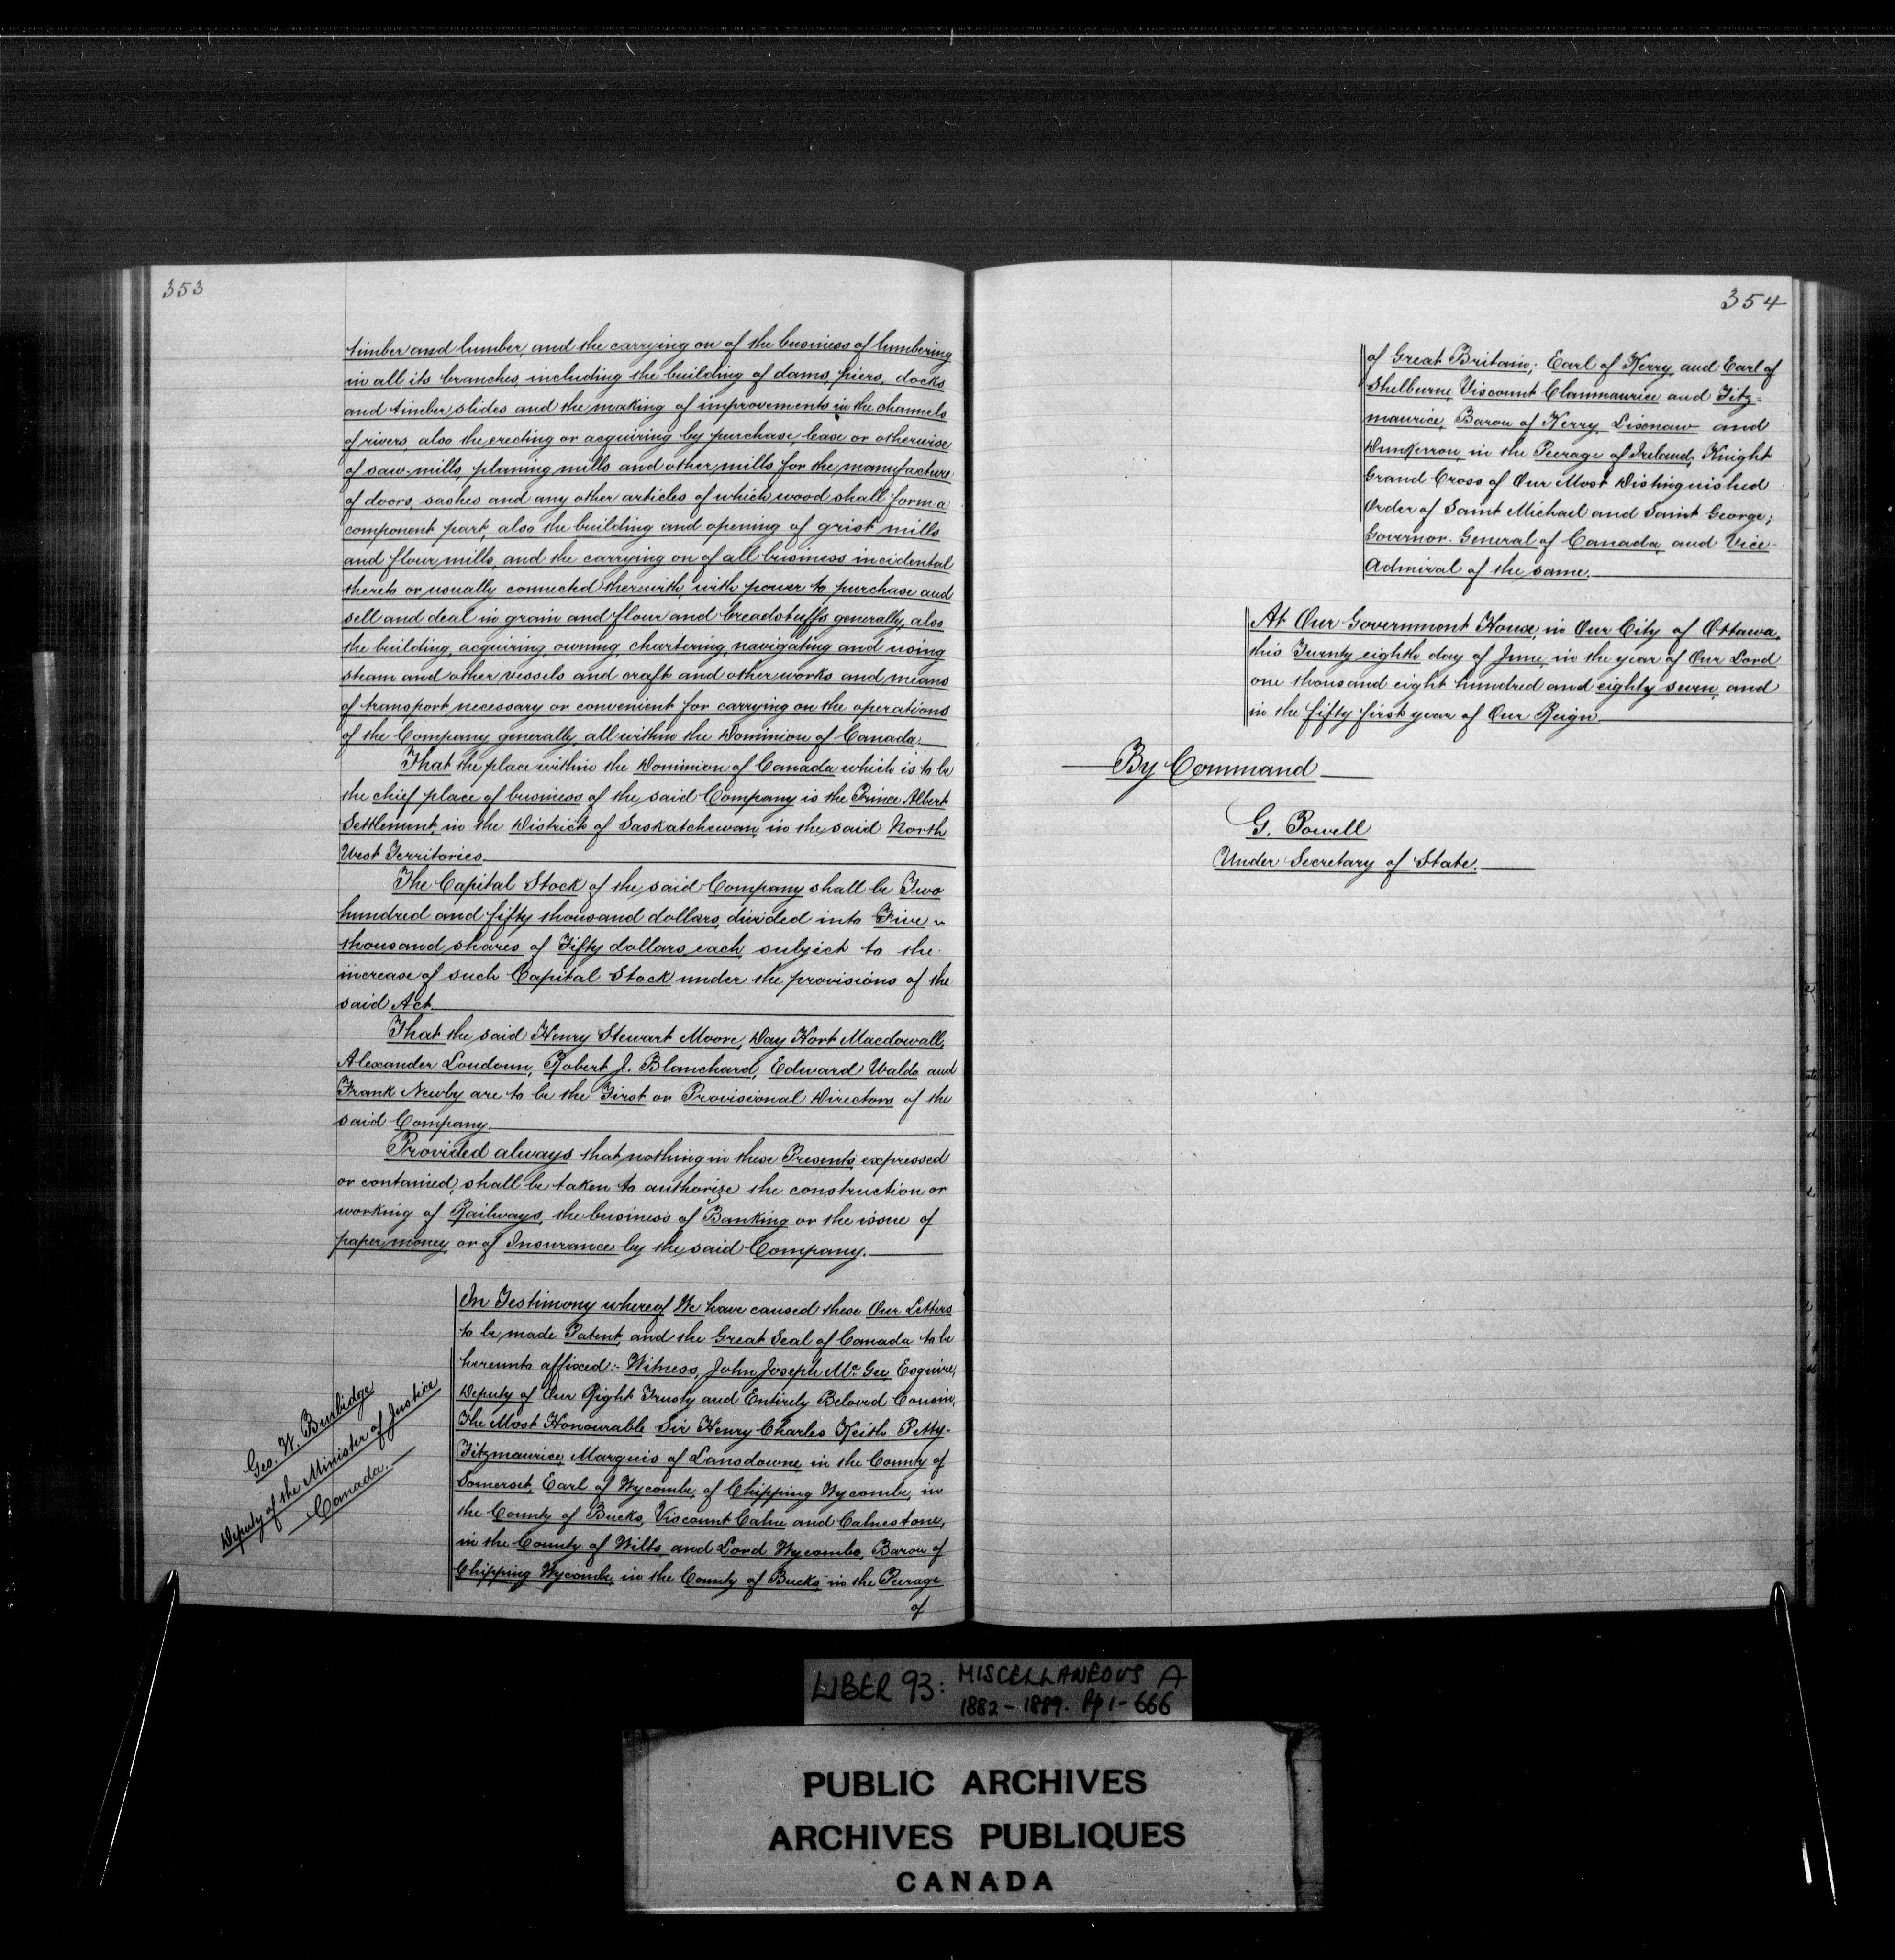 353
timber and lumber, and the carrying on of the business of lumbering
in all its branches, including the building of dams, piers, docks
and timber slides and the making of improvements in the channels
of rivers, also the erecting or acquiring by purchase lease or otherwise
of saw-mills, planing mills and other mills for the manufacture
of doors, sashes and any other articles of which wood shall form a
component part, also the building and opening of grist mills
and flour mills, and the carrying on of all business incidental
thereto or usually connected therewith with power to purchase and
sell and deal in grain and flour and breadstuffs generally, also
the building, acquiring, owning, chartering, navigating and using
steam and other vessels and craft and other works and means
of transport necessary or convenient for carrying on the operations
of the Company generally, all within the Dominion of Canada.
That the place within the Dominion of Canada which is to be
the chief place of business of the said Company is the Prince Albert
Settlement, in the District of Saskatchewan, in the said North
West Territories.
The Capital Stock of the said Company shall be Two
hundred and fifty thousand dollars, divided into Five
thousand shares of Fifty dollars each, subject to the
increase of such Capital Stock under the provisions of the
said Act.
That the said Henry Stewart Moore, Day Hort Macdowall,
Alexander Loudoun, Robert J. Blanchard, Edward Waldo and
Frank Newby are to be the First or Provisional Directors of the
said Company.
Provided always that nothing in these Presents expressed
or contained, shall be taken to authorize the construction or
working of Railways, the business of Banking or the issue of
paper money, or of Insurance by the said Company.
In Testimony whereof We have caused these Our Letters
to be made Patent, and the Great Seal of Canada to be
hereunto affixed:- Witness, John Joseph Mc Gee Esquire,
Deputy of Our Right Trusty and Entirely Beloved Cousin,
The Most Honourable Sir Henry Charles Keith Petty-
Fitzmaurice, Marquis of Lansdowne, in the County of
Somerset, Earl of Wycombe, of Chipping Wycombe, in
the County of Bucks, Viscount Calne and Calnestone,
in the County of Wilts, and Lord Wycombe, Baron of
Chipping Wycombe, in the County of Bucks, in the Peerage
of
Geo. W. Burbidge
Deputy of the Minister of Justice
Canada.
354
of Great Britain; Earl of Kerry, and Earl of
Shelburne, Viscount Clanmaurice and Fitz-
maurice, Baron of Kerry, Lixnaw and
Dunkerron, in the Peerage of Ireland, Knight
Grand Cross of Our Most Distinguished
Order of Saint Michael and Saint George;
Governor-General of Canada, and Vice-
Admiral of the same.
At Our Government House, in Our City of Ottawa,
this Twenty eighth day of June, in the year of Our Lord
one thousand eight hundred and eighty seven, and
in the fifty first year of Our Reign
By Command
G. Powell
Under Secretary of State.
LIBER 93: MISCELLANEOUS A
1882-1889. Pp 1-666
PUBLIC ARCHIVES
ARCHIVES PUBLIQUES
CANADA